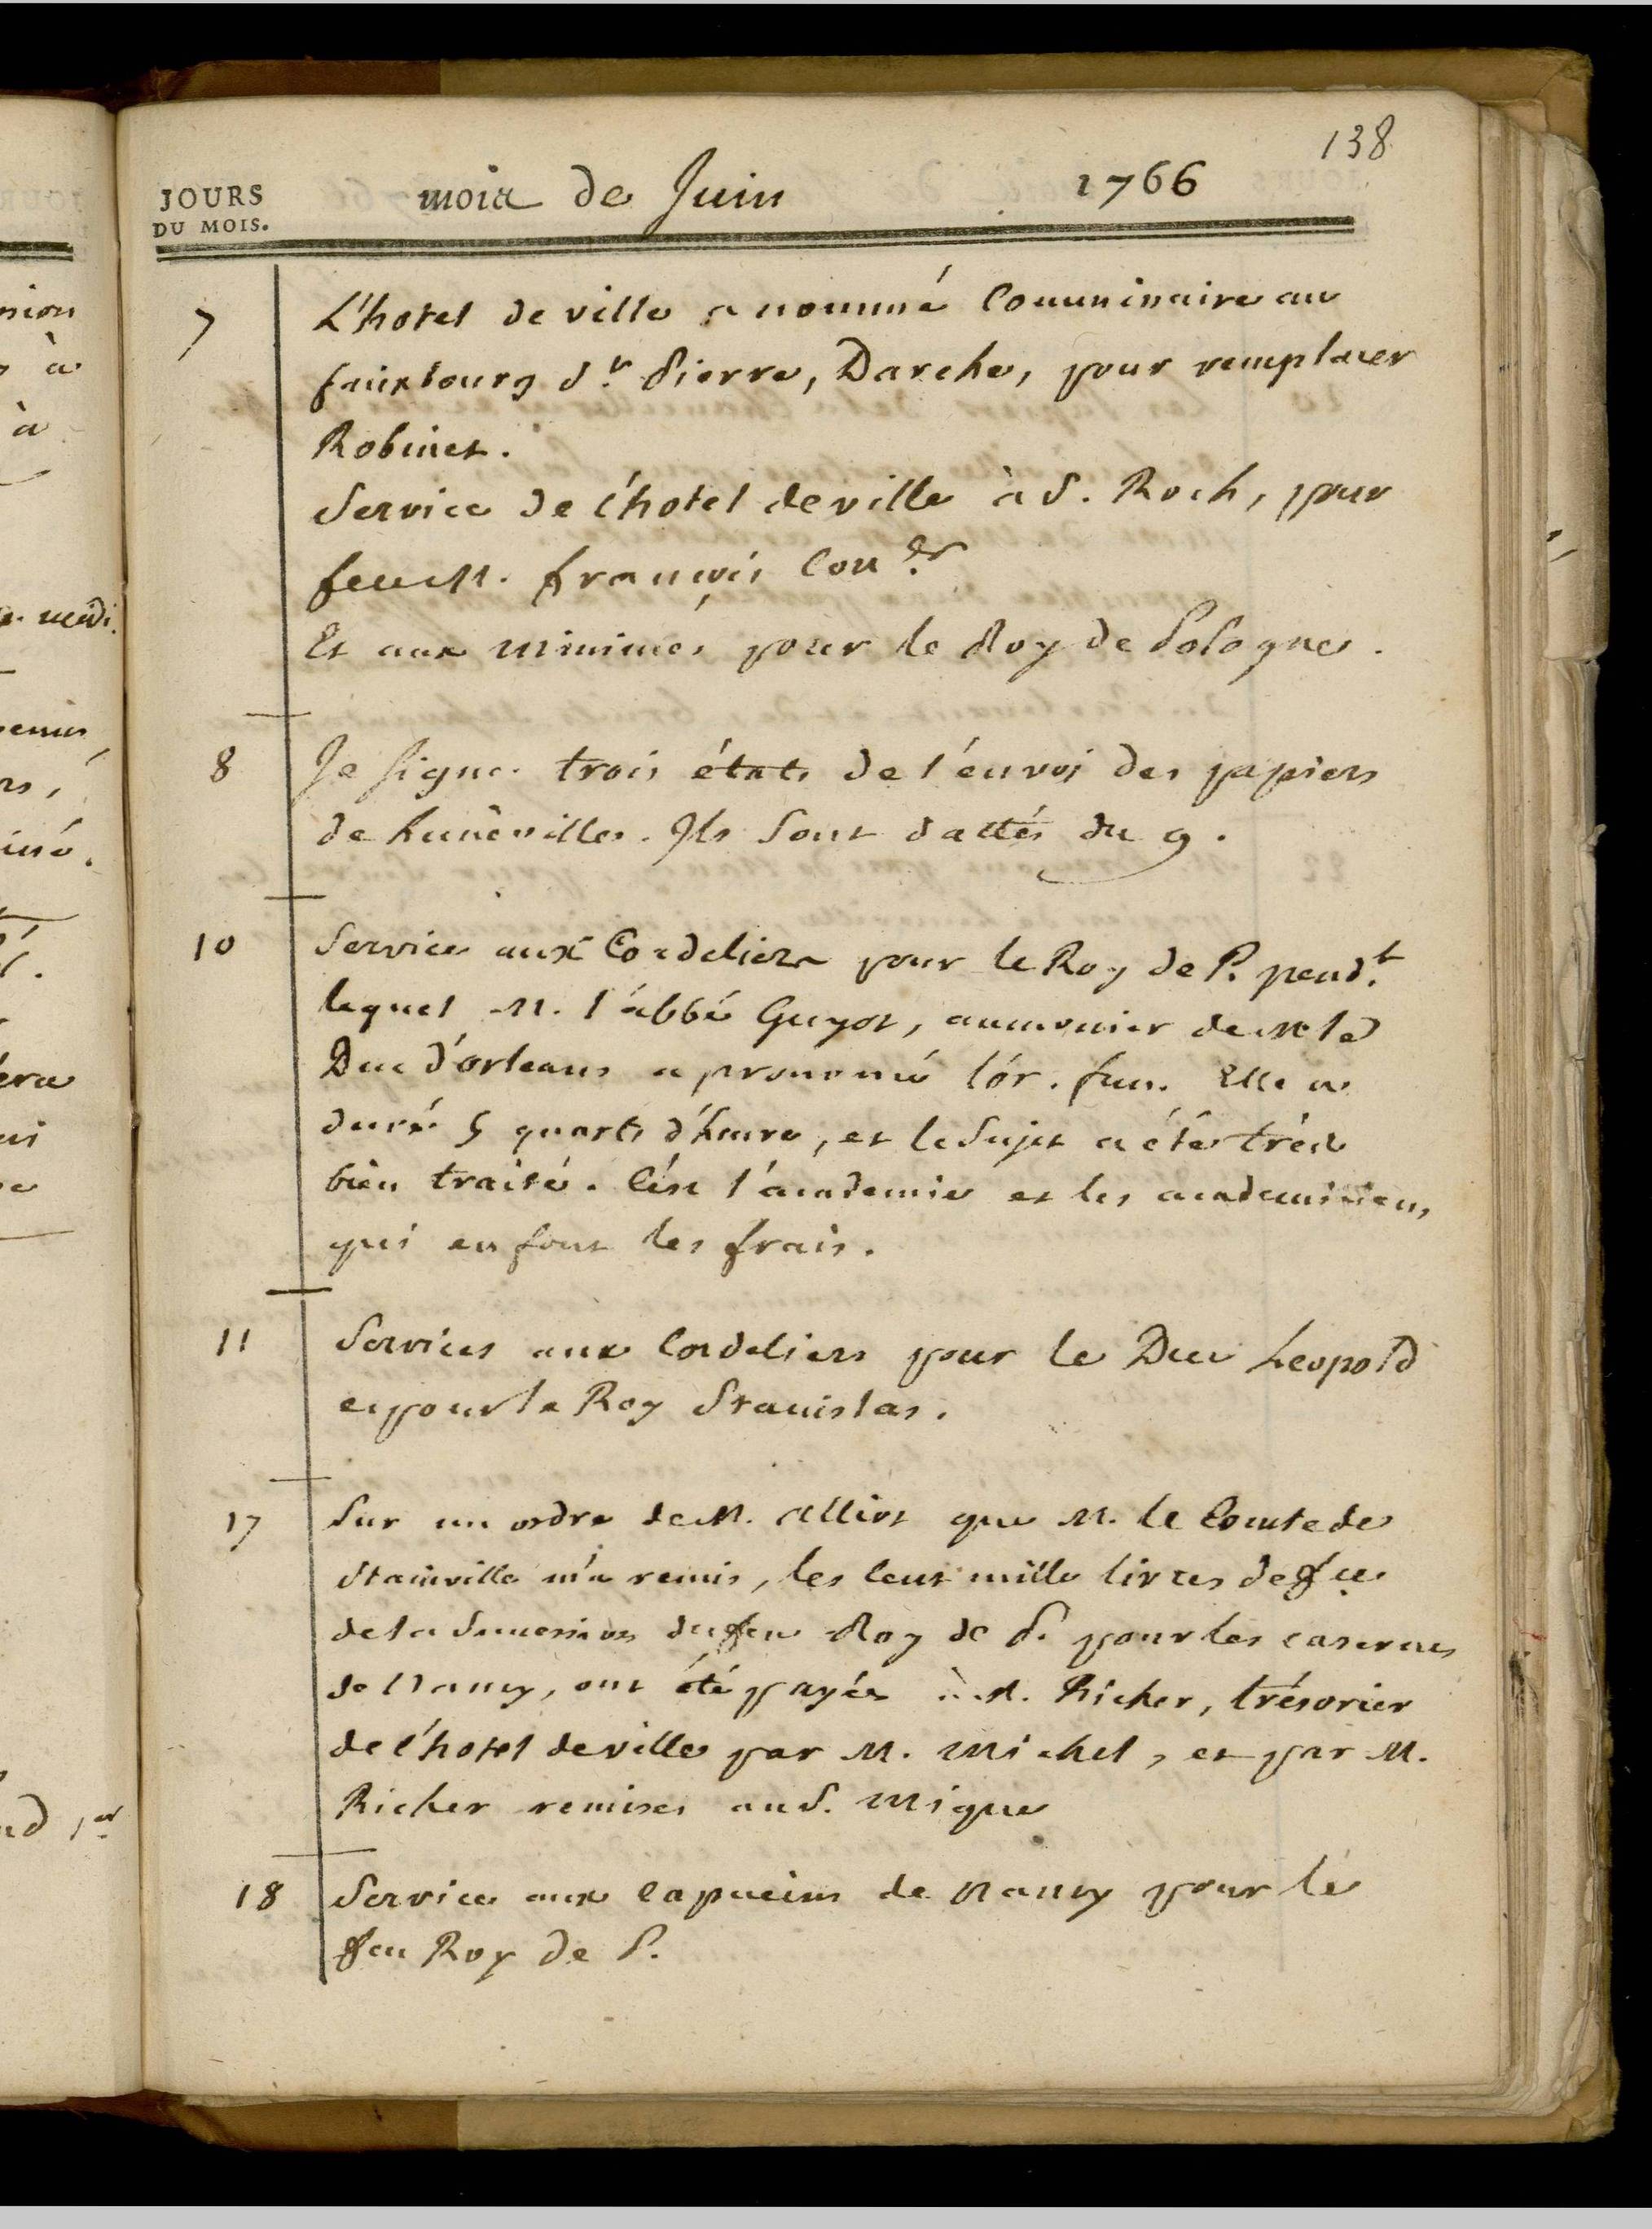 138
JOURS
DU MOIS.
mois de Juin 1766
7 L'hotel de ville a nommé Commissaire au
fauxbourg St. Pierre, Darche, pour remplacer
Robinet.
Service de l'hotel de ville à S. Roch, pour
feu M. François Con.er
Et aux minimes pour le Roy de Pologne.
8 Je signe trois états de l'envoi des papiers
de Lunéville. Ils sont dattés du 9.
10 Service aux Cordeliers pour le Roy de P. pend.t
lequel M. l'abbé Guyot, aumonier de M. le
Duc d'orleans a prononcé l'or. fun. Elle a
duré 5 quarts d'heure, et le Sujet a été trés
bien traité. C'est l'academie et les academiciens,
qui en font les frais.
11 Services aux Cordeliers pour le Duc Leopold
et pour le Roy Stanislas.
17 Sur un ordre de M. Alliot que M. le Comte de
Stainville m'a remis, les cent mille livres de
de la Succession du feu Roy de P. pour les casernes
de Nancy, ont été payés à M. Richer, trésorier
de l'hotel de ville par M. Michel, et par M.
Richer remises au S. Mique
18 Service aux Capucins de Nancy pour le
feu Roy de P.